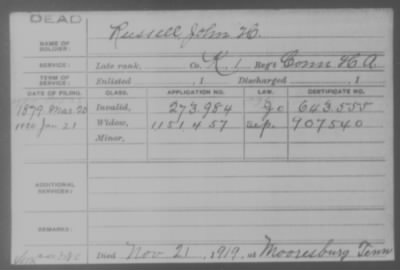 DEAD
Russell John H.
NAME OF SOLDIER:
SERVICE: Late rank, Co. K, 1 Reg't Conn H A
TERM OF SERVICE: Enlisted , 1 Discharged , 1
DATE OF FILING. CLASS. APPLICATION NO. LAW. CERTIFICATE NO.
1879 Mar. 20 Invalid, 273.984 643.555
1920 Jan 21 Widow, 1151457 907540
Minor,
ADDITIONAL SERVICES:
REMARKS:
Died Nov 21, 1919, at Mooresburg Tenn